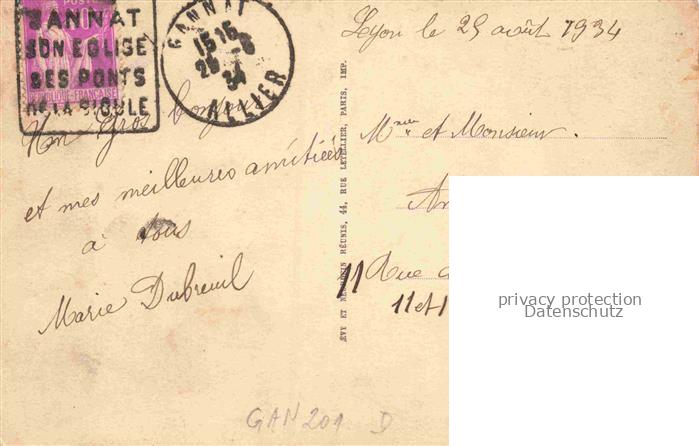 GANNAT
SON EGLISE
SES PONTS
DE LA SIOULE
POSTES
REPUBLIQUE FRANÇAISE
GANNAT
15 15
26 - 8
34
ALLIER
Lyon le 25 août 1934
Un gros bonjour
et mes meilleures amitiées
à tous
Marie Dubreuil
LEVY ET NEURDEIN RÉUNIS, 44, RUE LETELLIER, PARIS, IMP.
Mme et Monsieur.
An
11 Rue
11 et 1
privacy protection
Datenschutz
GAN 201 D